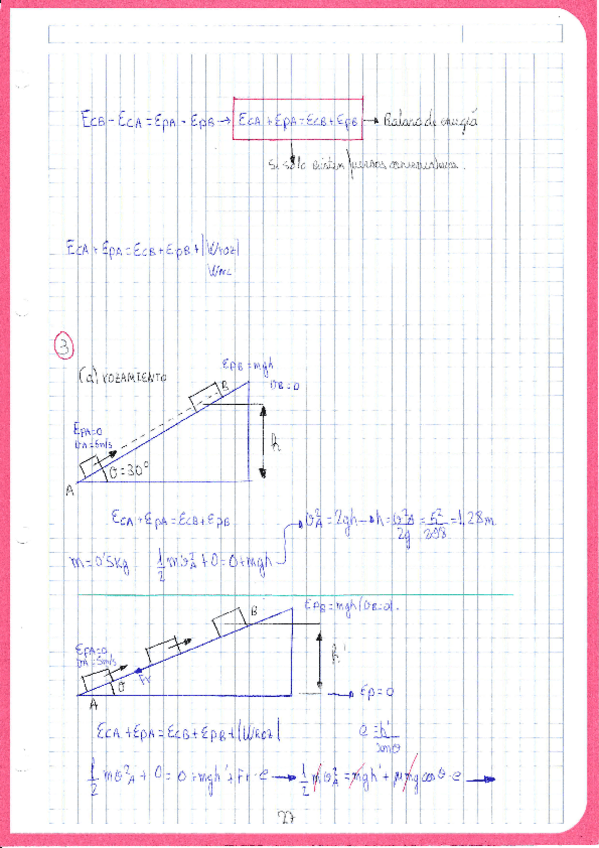 EcB - EcA = EpA - EpB → EcA + EpA = EcB + EpB → Balance de energía
Si solo existen fuerzas conservativas.
EcA + EpA = EcB + EpB + |Wroz|
Wnc
3
(a) rozamiento
EpB = mgh
vB = 0
B
EpA = 0
vA = 5m/s
θ = 30°
h
A
EcA + EpA = EcB + EpB
v²A = 2gh → h = v²A/2g = 5²/2·9'8 = 1,28 m
m = 0'5 Kg 1/2 m v²A + 0 = 0 + mgh
EpB = mgh (vB = 0).
B
EpA = 0
vA = 5m/s
h'
θ
Fr
A
Ep = 0
EcA + EpA = EcB + EpB + |Wroz|
e = h'/senθ
1/2 m v²A + 0 = 0 + mgh' + Fr · e → 1/2 m v²A = mgh' + μmg cos θ · e →
27